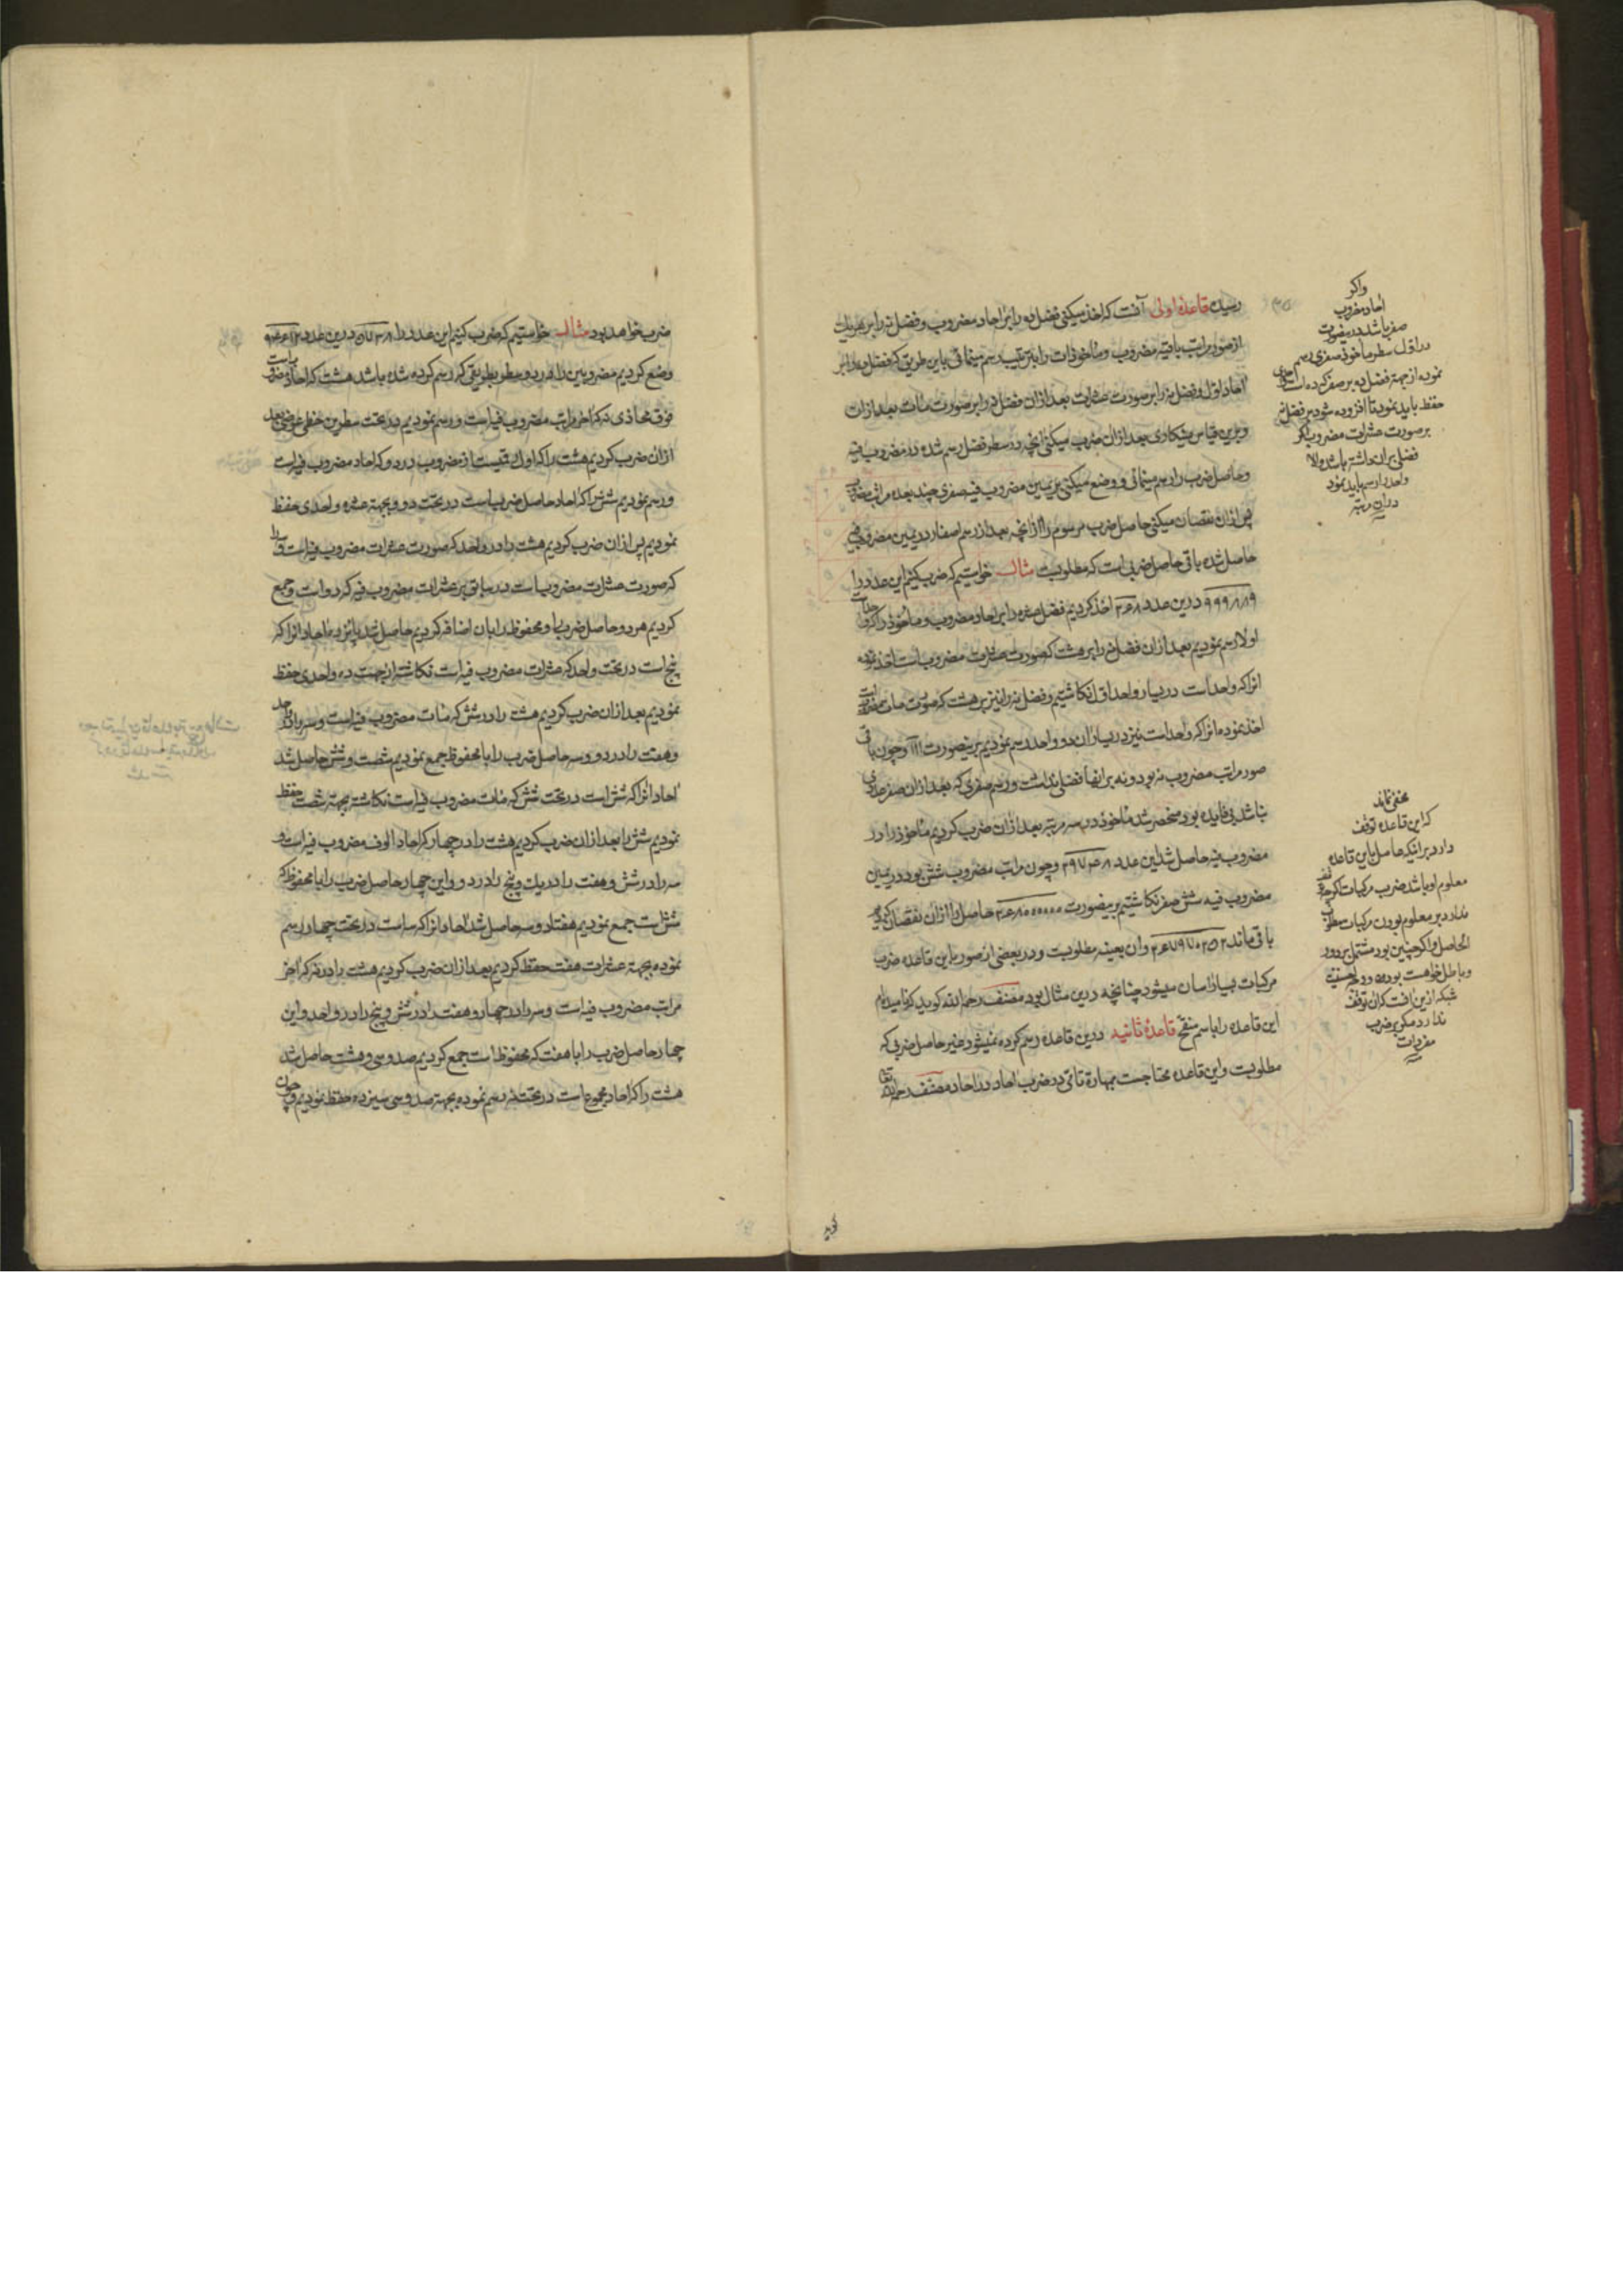 رسیده قاعدهٔ اولی آنست که اخذ میکنی فضل ده را بر احاد مضروب و فضل نه را بر هر یک
از صور مراتب باقیه مضروب و مأخوذات را بترتیب رسم مینمائی باین طریق که فضل ده را بر
احاد اول و فضل نه را بر صورت عشرات بعد از آن فضل نه را بر صورت مئات بعد از آن
و برین قیاس مینگاری بعد از آن ضرب میکنی انچه در سطر فضل رسم شده در مضروب فیه
و حاصل ضرب را رسم مینمائی و وضع میکنی بر یمین مضروب فیه صفری چند بعده مراتب مضروب
پس از آن نقصان میکنی حاصل ضرب مرسوم را از انچه بعد از رسم اصفار در یمین مضروب فیه
حاصل شده باقی حاصل ضربی است که مطلوبست مثال خواستیم که ضرب کنیم این عدد را
۹۹۹۸۸۹ درین عدد ۲۶۸ اخذ کردیم فضل عشره را بر احاد مضروب و مأخوذ را که واحد است
اولا رسم نمودیم بعد از آن فضل نه را بر هشت که صورت عشرات مضروب است اخذ نموده
انرا که واحد است در یسار واحد اول نگاشتیم و فضل نه را نیز بر هشت که صورت مئات مضروبست
اخذ نموده انرا که واحد است نیز در یسار ان دو واحد رسم نمودیم برینصورت ۱۱۱ و چون باقی
صور مراتب مضروب نه بود و نه بر انها فضلی نداشت و رسم صفری که بعد از ان صفر عددی
نباشد بی فایده بود منحصر شد مأخوذ در سه مرتبه بعد از ان ضرب کردیم مأخوذ را در
مضروب فیه حاصل شد این عدد ۲۹۷۴۸ و چون مراتب مضروب شش بود در یمین
مضروب فیه شش صفر نگاشتیم برینصورت ۲۶۸۰۰۰۰۰۰ حاصل را از ان نقصان کردیم
باقی ماند ۲۶۷۹۷۰۲۵۲ و ان بعینه مطلوبست و در بعضی از صور باین قاعده ضرب
مرکبات بسیار اسان میشود چنانچه درین مثال بود مصنف رحمه الله گوید که نامیده‌ام
این قاعده را باسم منقح قاعدهٔ ثانیه درین قاعده رسم کرده نمیشود غیر حاصل ضربی که
مطلوبست و این قاعده محتاجست بمهارة تامّی در ضرب احاد در احاد مصنف رحمه الله تعالی
گوید
واکر
احاد مضروب
صفر باشد درینصورت
در اول سطر مأخوذ صفری رسم
نموده از جهت فضل ده بر صفر که ده است واحدی
حفظ باید نمود تا افزوده شود بر فضل نه
بر صورت عشرات مضروب اگر
فضلی بر ان داشته باشد والا
واحد را رسم باید نمود
در ان مرتبه
مخفی نماند
که این قاعده توقف
دارد بر انیکه حاصل باین قاعده
معلوم او باشد ضرب مرکبات اگرچه توقف
ندارد بر معلوم بودن مرکبات مطلوب
الحاصل واگر چنین بود مشتمل بر دور
و باطل خواهست بود
شبکه ازین افت که ان توقف
ندارد مگر بر ضرب
مفردات
ضرب خواهد بود مثال خواستیم که ضرب کنیم این عدد را ۵۷۳۸ درین عدد ۹۴۶۱۲
وضع کردیم مضروبین را در دو سطر بطریقی که رسم کرده شده باشد هشت که احاد مضروبست
فوق محاذی نه که اخر مراتب مضروب فیه است و رسم نمودیم در تحت سطرین خطی عرضی بعد
از ان ضرب کردیم هشت را که اول رقمیست از مضروب در دو که احاد مضروب فیه است
و رسم نمودیم شش را که احاد حاصل ضربست در تحت دو و بجهة عشره واحدی حفظ
نمودیم پس از ان ضرب کردیم هشت را در واحد که صورت عشرات مضروب فیه است و سه را
که صورت عشرات مضروب است در مابقی بر عشرات مضروب فیه که دو است و جمع
کردیم هر دو حاصل ضرب را و محفوظ را بان اضافه کردیم حاصل شد پانزده احاد انرا که
پنج است در تحت واحد که عشرات مضروب فیه است نگاشته از جهت ده واحدی حفظ
نمودیم بعد از ان ضرب کردیم هشت را در شش که مئات مضروب فیه است و سه را در واحد
و هفت را در دو و سه حاصل ضرب را با محفوظ جمع نمودیم شصت و شش حاصل شد
احاد انرا که شش است در تحت شش که مئات مضروب فیه است نگاشته بجهة شصت حفظ
نمودیم شش را بعد از ان ضرب کردیم هشت را در چهار که احاد الوف مضروب فیه است و
سه را در شش و هفت را در یک و پنج را در دو و این چهار حاصل ضرب را با محفوظ که
شش است جمع نمودیم هفتاد و سه حاصل شد احاد انرا که سه است در تحت چهار رسم
نموده بجهة عشرات هفت حفظ کردیم بعد از ان ضرب کردیم هشت را در نه که اخر
مراتب مضروب فیه است و سه را در چهار و هفت را در شش و پنج را در واحد و این
چهار حاصل ضرب را با هفت که محفوظ است جمع کردیم صد و سی و هشت حاصل شد
هشت را که احاد مجموع است در تحت نه رسم نموده بجهة صد و سی سیزده حفظ نمودیم و چون